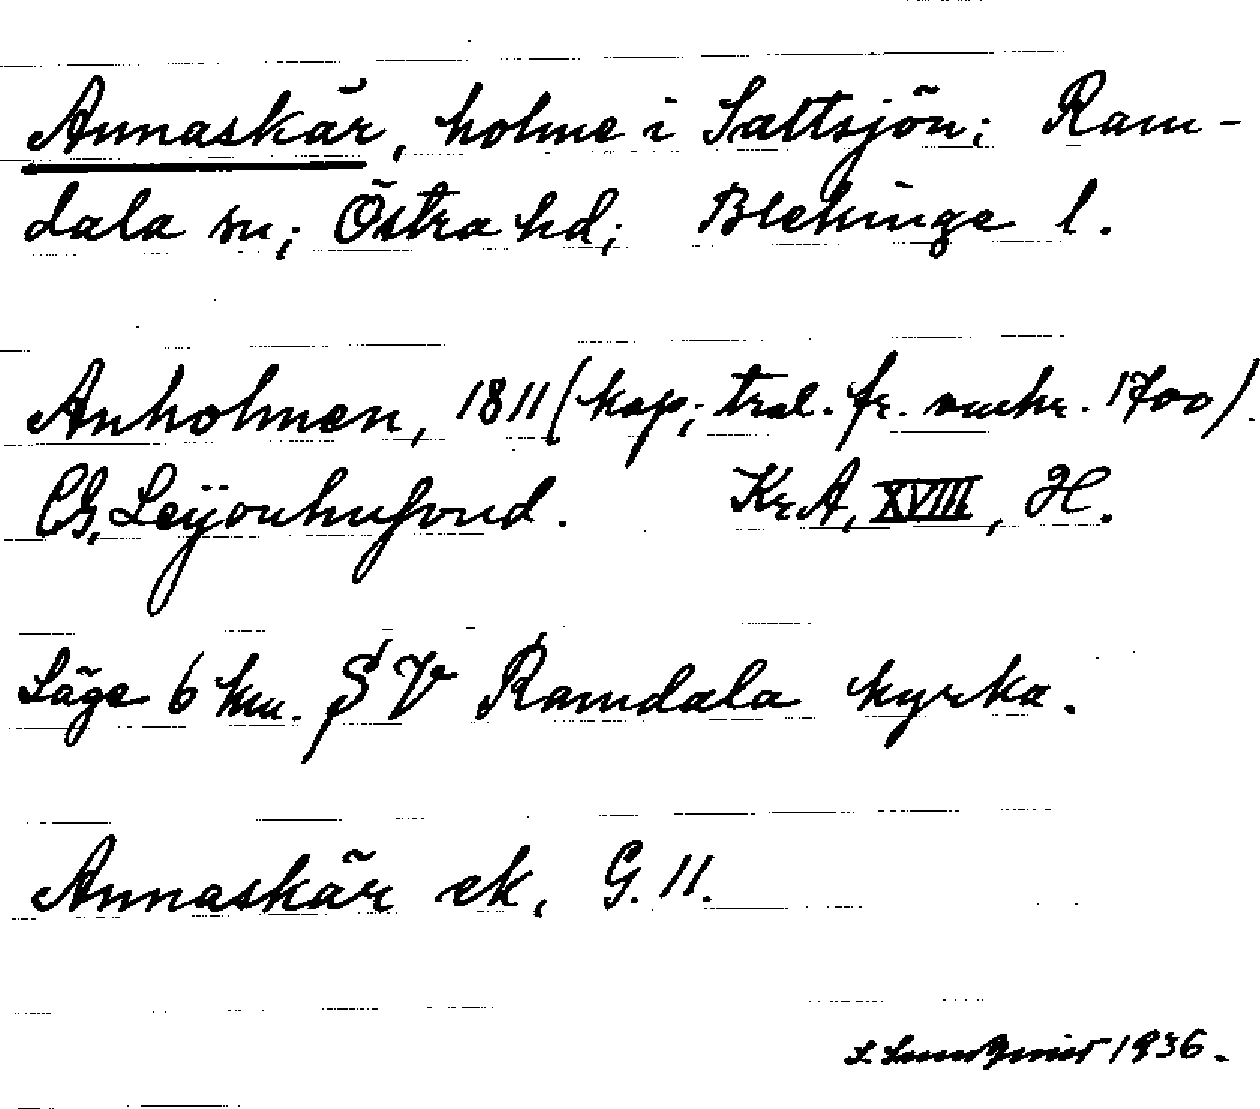 Annaskär, holme i Saltsjön; Ram-
dala sn; Östra hd; Blekinge l.
Anholmen, 1811 (kop; trol. fr. omkr. 1700).
CG, Leijonhufvud. KrA, XVIII, H.
Läge 6 km. SV Ramdala kyrka.
Annaskär ek, G. 11.
1936.